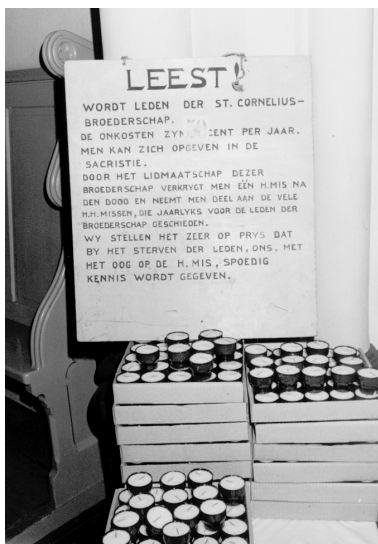 LEEST!
WORDT LEDEN DER ST. CORNELIUS-
BROEDERSCHAP.
DE ONKOSTEN ZYN CENT PER JAAR.
MEN KAN ZICH OPGEVEN IN DE
SACRISTIE.
DOOR HET LIDMAATSCHAP DEZER
BROEDERSCHAP VERKRYGT MEN EÉN H.MIS NA
DEN DOOD EN NEEMT MEN DEEL AAN DE VELE
H.H. MISSEN, DIE JAARLYKS VOOR DE LEDEN DER
BROEDERSCHAP GESCHIEDEN.
WY STELLEN HET ZEER OP PRYS DAT
BY HET STERVEN DER LEDEN, ONS, MET
HET OOG OP DE H. MIS, SPOEDIG
KENNIS WORDT GEGEVEN.